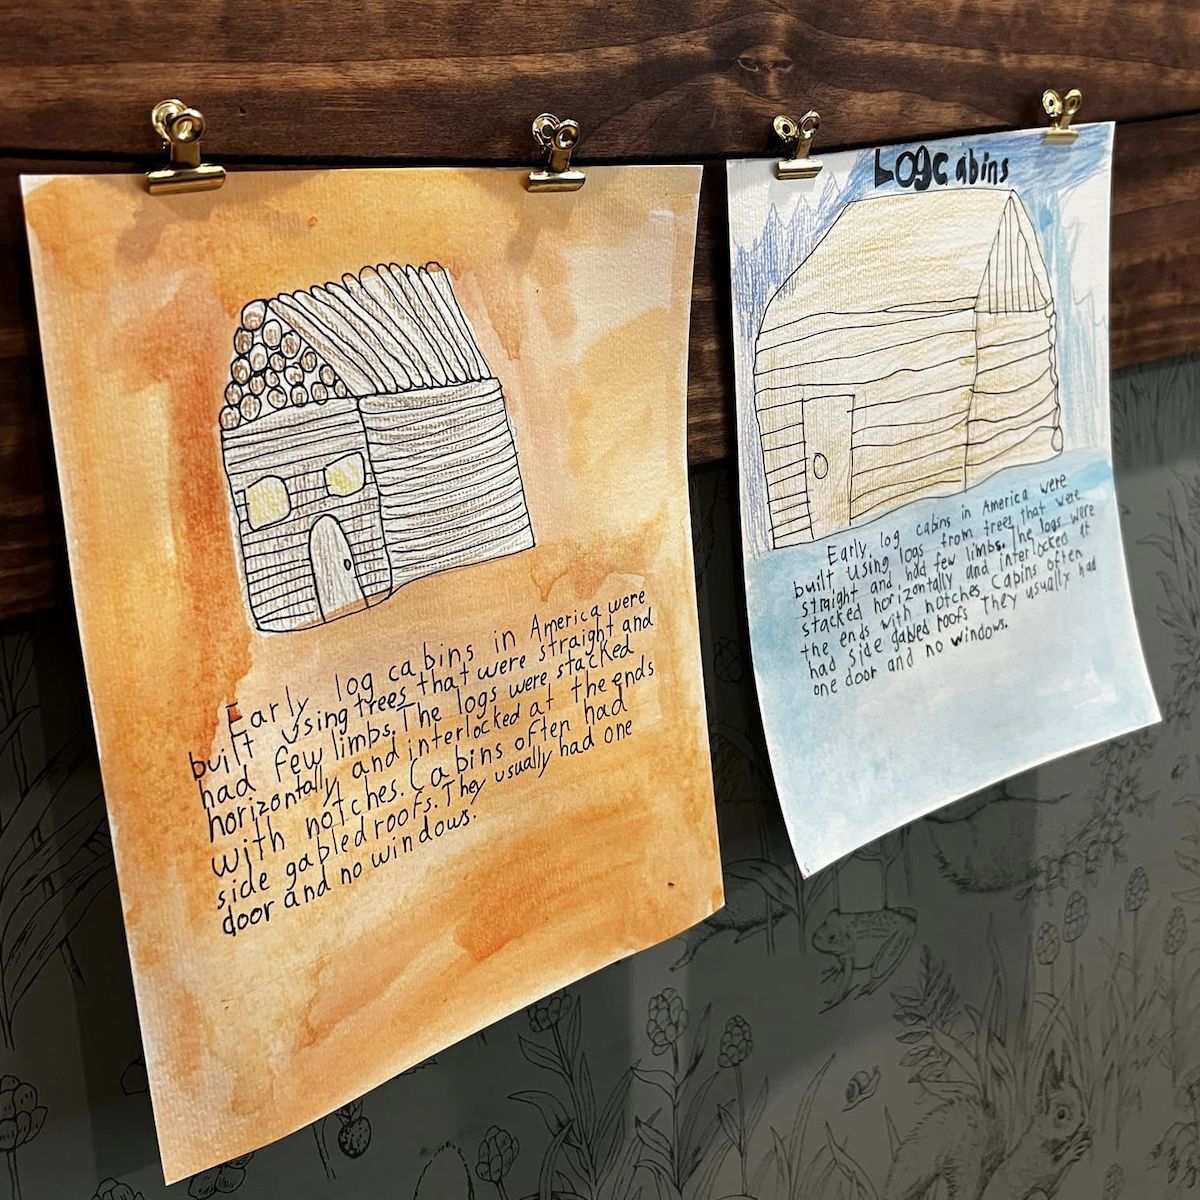 Early log cabins in America were
built using trees that were straight and
had few limbs. The logs were stacked
horizontally and interlocked at the ends
with notches. Cabins often had
side gabled roofs. They usually had one
door and no windows.
Log Cabins
Early log cabins in America were
built using logs from trees that were
straight and had few limbs. The logs were
stacked horizontally and interlocked at
the ends with notches. Cabins often
had side gabled roofs They usually had
one door and no windows.